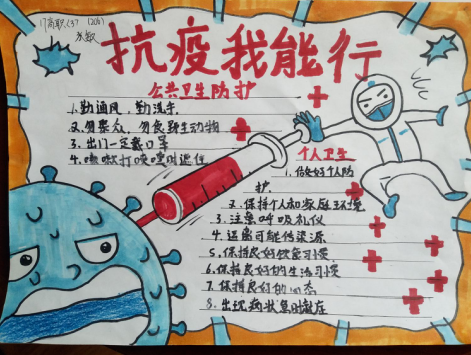 17高职(3) (206)
抗疫我能行
公共卫生防护
1.勤通风、勤洗手
2.勿聚众、勿食野生动物
3.出门一定戴口罩
4.咳嗽打喷嚏时遮住
个人卫生
1.做好个人防
护
2.保持个人和家庭环境
3.注意呼吸礼仪
4.远离可能传染源
5.保持良好饮食习惯
6.保持良好的生活习惯
7.保持良好的心态
8.出现病状及时就医